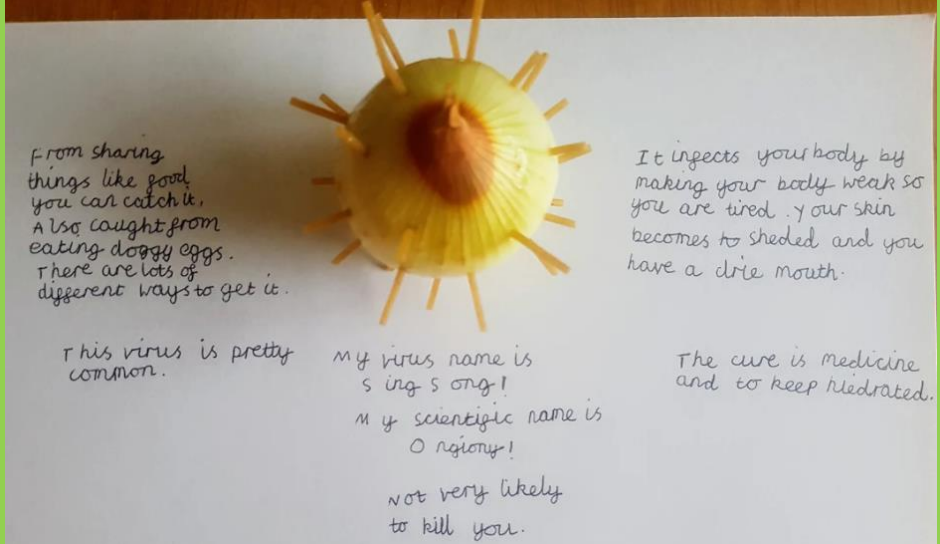 From sharing
things like food
you can catch it.
Also caught from
eating doggy eggs.
There are lots of
different ways to get it.
This virus is pretty
common.
My virus name is
Sing Song!
My scientific name is
Ongiony!
Not very likely
to kill you.
It infects your body by
making your body weak so
you are tired. Your skin
becomes to sheded and you
have a drie mouth.
The cure is medicine
and to keep hiedrated.